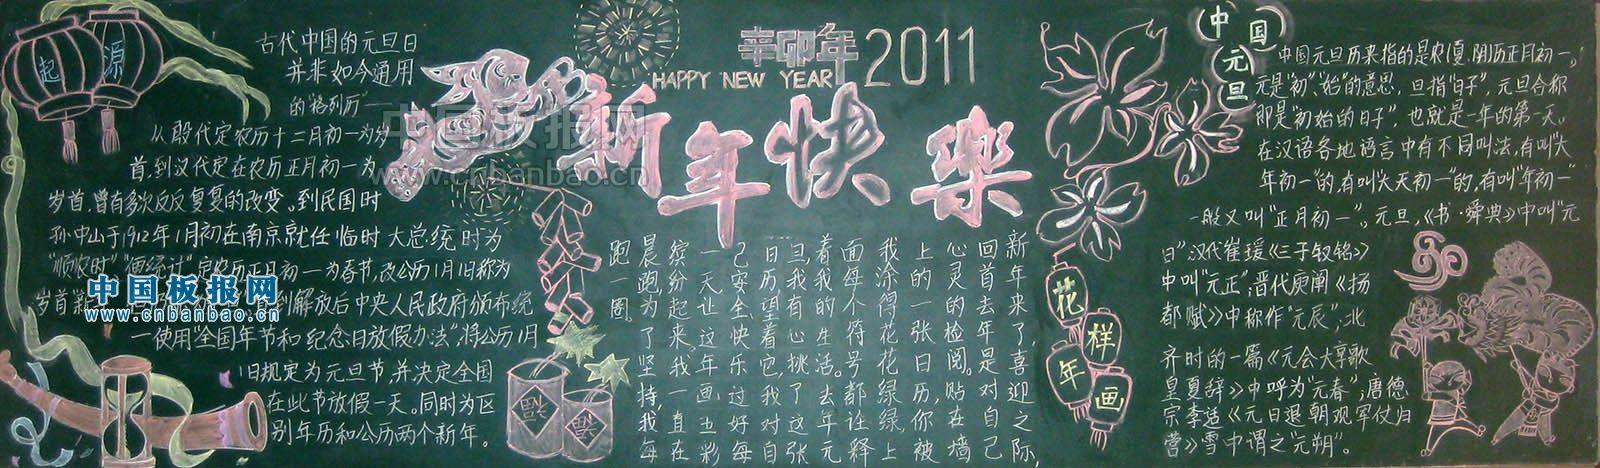 起源
古代中国的元旦日
并非如今通用
的“格列历”——
从殷代定农历十二月初一为岁
首,到汉代定在农历正月初一为
岁首,曾有多次反反复复的改变。到民国时
孙中山于1912年1月初在南京就任临时大总统时为
“顺农时”“便统计”定农历正月初一为春节,改公历1月1旧称为
岁首新
到解放后中央人民政府颁布统
一使用“全国年节和纪念日放假办法”,将公历1月
1旧规定为元旦节,并决定全国
在此节放假一天。同时为区
别年历和公历两个新年。
中国板报网
www.cnbanbao.cn
中国板报网
www.cnbanbao.cn
辛卯年 2011
HAPPY NEW YEAR
新年快乐
新年来了,喜迎之际,
回首去年是对自己
心灵的检阅。贴在墙
上的一张日历,你被
我涂得花花绿绿,上
面每个符号都诠释
着我的生活。去年元
旦,我有心挑了这张
日历望着它,我对自
己安全、快乐过好每
一天让这年画五彩
缤纷起来,我一直在
晨跑为了坚持,我每
跑一圈
花样年画
中国元旦
中国元旦历来指的是农(夏、阴)历正月初一,
元是“初”、“始”的意思,旦指“日子”,元旦合称
即是“初始的日子”,也就是一年的第一天。
在汉语各地语言中有不同叫法,有叫“大
年初一”的,有叫“大天初一”的,有叫“年初一”
一般又叫“正月初一”。元旦,《书·舜典》中叫“元
日”汉代崔瑗《三子钗铭》
中叫“元正”;晋代庾阐《扬
都赋》中称作“元辰”;北
齐时的一篇《元会大享歌
皇夏辞》中呼为“元春”;唐德
宗李适《元日退朝观军仗归
营》雪中谓之“元朔”。